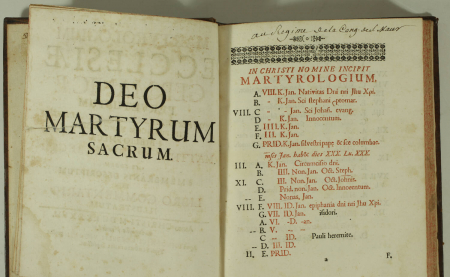 DEO
MARTYRUM
SACRUM.
IN CHRISTI NOMINE INCIPIT
MARTYROLOGIUM.
A. VIII. K. Jan. Nativitas Dni nri Jhu Xpi.
B. - K. Jan. Sci Stephani promar.
VIII. C - - Jan. Sci Johan. evang.
D - K. Jan. Innocentum.
E. IIII. K. Jan.
F. III - K. Jan.
G. PRID. K. Jan. silvestri papę & sce columbae.
Jan. habet dies XXX. Lu. XXX.
III. A. K. Jan. Circumcisio dni.
B. IIII. Non. Jan. Oct. Steph.
XI. C. III. Non. Jan. Oct. Johis.
D. Prid. non Jan. Oct. Innocentum.
-- E. Nonas. Jan.
VIII. F. VIII. ID. Jan. epiphania dni nri Jhu Xpi.
G. VII. ID. Jan. isidori.
A. VI. - D. - an.
-- B. V. -- --
C -- ID. Pauli heremite.
-- D. III. ID.
II. E. PRID.
a F.